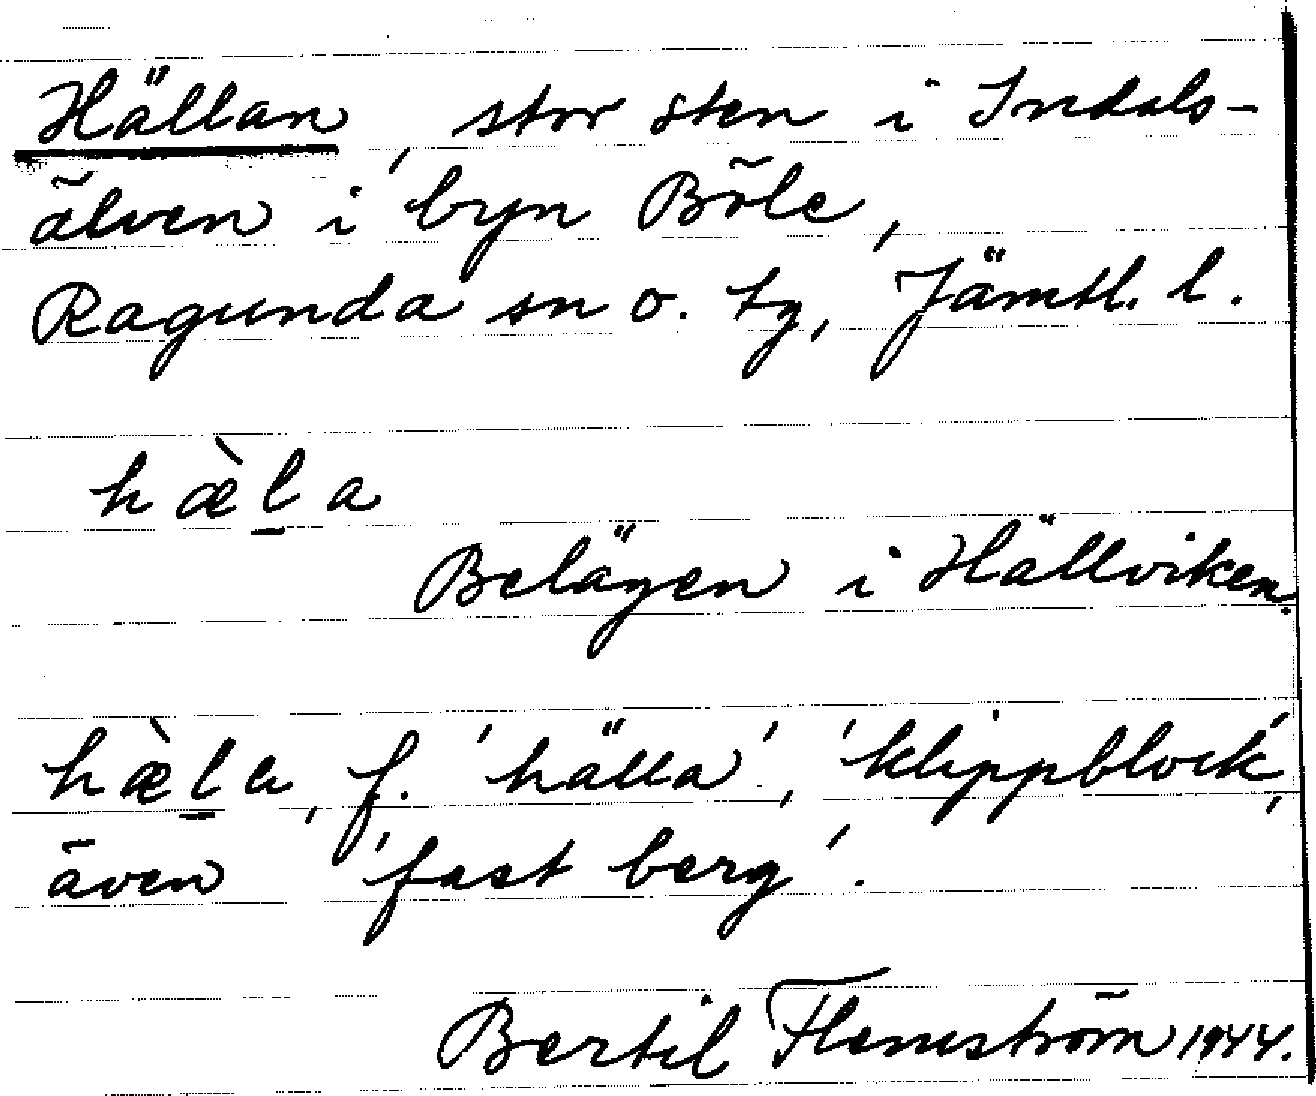 Hällan, stor sten i Indals-
älven i byn Böle,
Ragunda sn o. tg, Jämtl. l.
hæ̀l̲a
Belägen i Hällviken.
hæ̀l̲a, f. 'hälla', 'klippblock',
även 'fast berg'.
Bertil Flemström 1944.